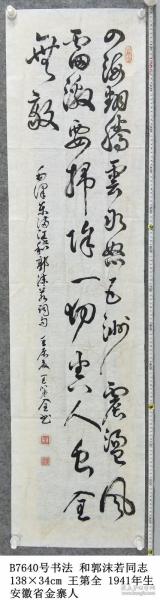 四海翻腾雲水怒五洲震盪風
雷激要掃除一切害人虫全
無敵
毛澤东满江红和郭沫若词句 王第全书
B7640号书法 和郭沫若同志
138×34cm 王第全 1941年生
安徽省金寨人